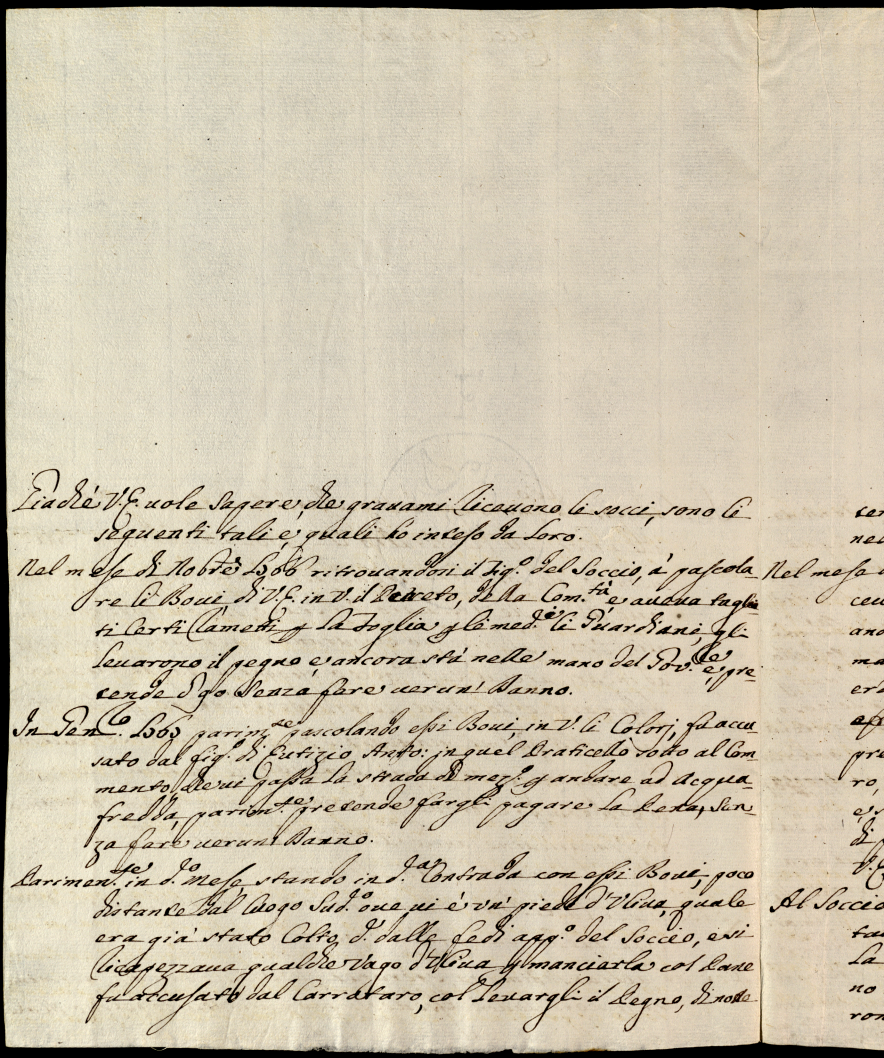 Giachè V.E. uole sapere che grauami riceuono li socci, sono li
seguenti tali, e quali hò inteso da Loro.
Nel mese di Nobre 1766 ritrouandosi il figº del Soccio, à pascola-
re li Boui di V.E. in V. il Decreto, della Com.tà e aueua taglia
ti Certi Rametti p La foglia p le med.e li Guardiani, gli
leuarono il pegno e ancora stà nelle mano del Gov.re e pre-
tende pgo senza fare uerun' Danno.
In Gen.ro parim.te pascolando essi Boui, in V. li Colorj, fu accu-
sato dal fig.º di Eutizio Anto: in quel Praticello sotto al Com-
mento che ui passa La strada di mezº p andare ad Acqua-
fredda, parim.te pretende fargli pagare La Pena, sen-
za fare uerun' Danno.
Parimen.te in d.º Mese, stando in d.ª Contrada con essi Boui, poco
distante dal luogo Sud.º oue ui è un' piede d'Uliua, quale
era già stato Colto, d. dalle fedi app.º del Soccio, e si
ricapezzaua qualche Vago d'Uliua p manciarla col Pane
fu accusato dal Carrataro, col Leuargli il Pegno, di note
ne
Nel mese
ceu
and
ma
pre
ro,
di
V.E
Al Soccio
La
no
ron